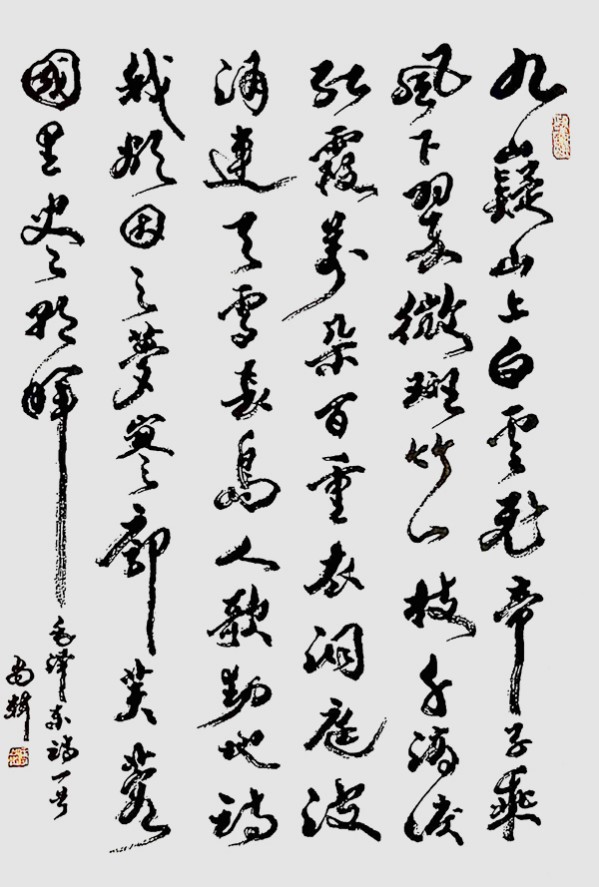 九嶷山上白雲飛帝子乘
風下翠微斑竹一枝千滴淚
紅霞萬朵百重衣洞庭波
涌連天雪長島人歌動地詩
我欲因之夢寥廓芙蓉
國里盡朝暉
毛澤東詩一首